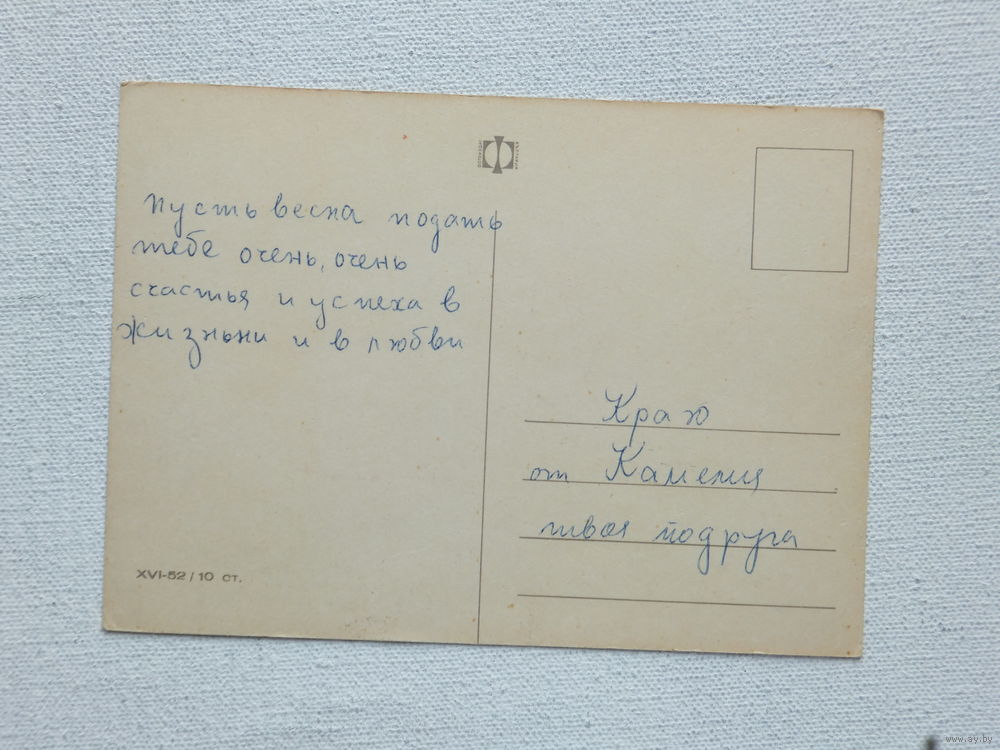 Пусть весна подать
тебе очень, очень
счастья и успеха в
жизньни и в любви
Краю
от Камелия
твоя подруга
XVI-52 / 10 ст.
www.ay.by